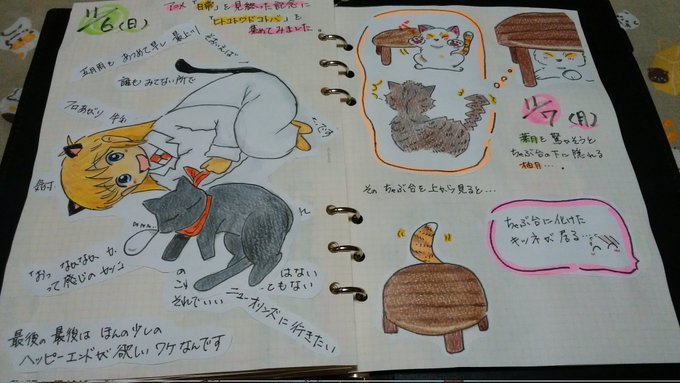 11/6(日)
アニメ「日常」を見終った記念に
「ヒトコトワドコトバ」を
集めてみました。
五月雨をあつめて早し最上川
そういえば
誰もみてない所で
って感じのヤツ
はない
ニューオリンズに行きたい
それでいい
最後の最後は ほんの少しの
ハッピーエンドが欲しいワケなんです
11/7(月)
葉月を驚かそうと
ちゃぶ台の下に隠れる
柚月…。
そのちゃぶ台を上から見ると…
ちゃぶ台に化けた
キツネが居る…